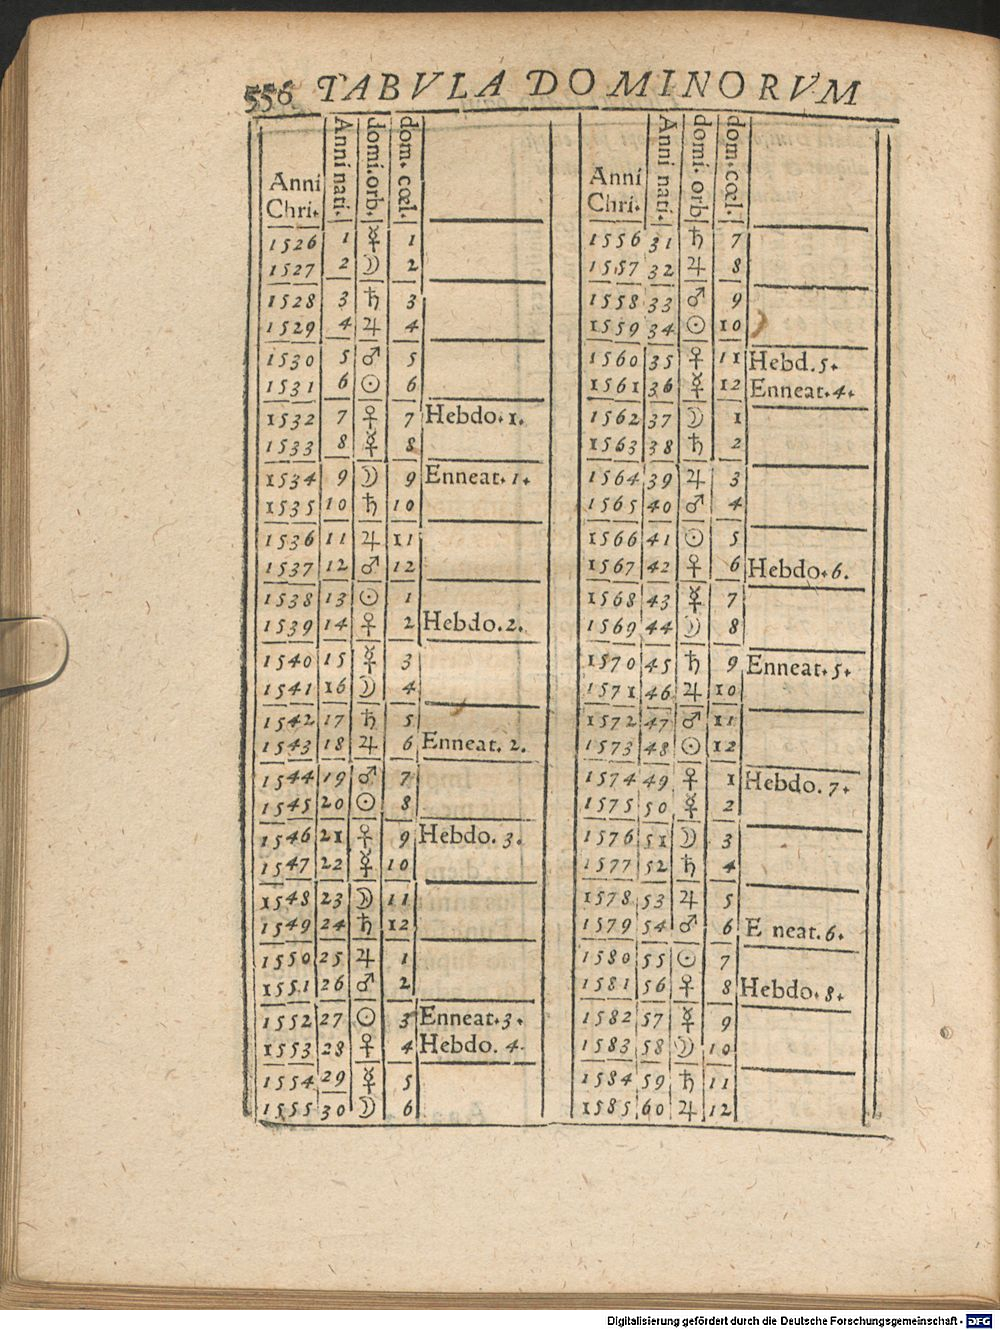 556 TABVLA DOMINORVM
Anni Chri. Anni nati. domi. orb. dom. cœl.
1526 1 ☿ 1
1527 2 ☽ 2
1528 3 ♄ 3
1529 4 ♃ 4
1530 5 ♂ 5
1531 6 ☉ 6
1532 7 ♀ 7 Hebdo. 1.
1533 8 ☿ 8
1534 9 ☽ 9 Enneat. 1.
1535 10 ♄ 10
1536 11 ♃ 11
1537 12 ♂ 12
1538 13 ☉ 1
1539 14 ♀ 2 Hebdo. 2.
1540 15 ☿ 3
1541 16 ☽ 4
1542 17 ♄ 5
1543 18 ♃ 6 Enneat. 2.
1544 19 ♂ 7
1545 20 ☉ 8
1546 21 ♀ 9 Hebdo. 3.
1547 22 ☿ 10
1548 23 ☽ 11
1549 24 ♄ 12
1550 25 ♃ 1
1551 26 ♂ 2
1552 27 ☉ 3 Enneat. 3.
1553 28 ♀ 4 Hebdo. 4.
1554 29 ☿ 5
1555 30 ☽ 6
Anni Chri. Anni nati. domi. orb. dom. cœl.
1556 31 ♄ 7
1557 32 ♃ 8
1558 33 ♂ 9
1559 34 ☉ 10
1560 35 ♀ 11 Hebd. 5.
1561 36 ☿ 12 Enneat. 4.
1562 37 ☽ 1
1563 38 ♄ 2
1564 39 ♃ 3
1565 40 ♂ 4
1566 41 ☉ 5
1567 42 ♀ 6 Hebdo. 6.
1568 43 ☿ 7
1569 44 ☽ 8
1570 45 ♄ 9 Enneat. 5.
1571 46 ♃ 10
1572 47 ♂ 11
1573 48 ☉ 12
1574 49 ♀ 1 Hebdo. 7.
1575 50 ☿ 2
1576 51 ☽ 3
1577 52 ♄ 4
1578 53 ♃ 5
1579 54 ♂ 6 E neat. 6.
1580 55 ☉ 7
1581 56 ♀ 8 Hebdo. 8.
1582 57 ☿ 9
1583 58 ☽ 10
1584 59 ♄ 11
1585 60 ♃ 12
Digitalisierung gefördert durch die Deutsche Forschungsgemeinschaft - DFG